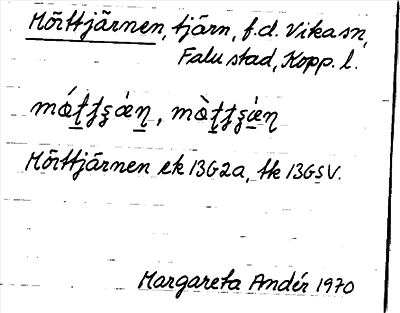 Mörttjärnen, tjärn, f.d. Vika sn,
Falu stad, Kopp. l.
Mörttjärnen ek 13G2a, tk 13GSV.
Margareta Andér 1970